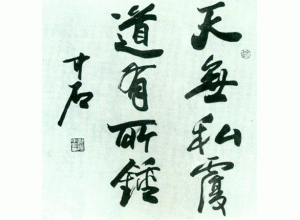 天無私覆
道有所鍾
中石